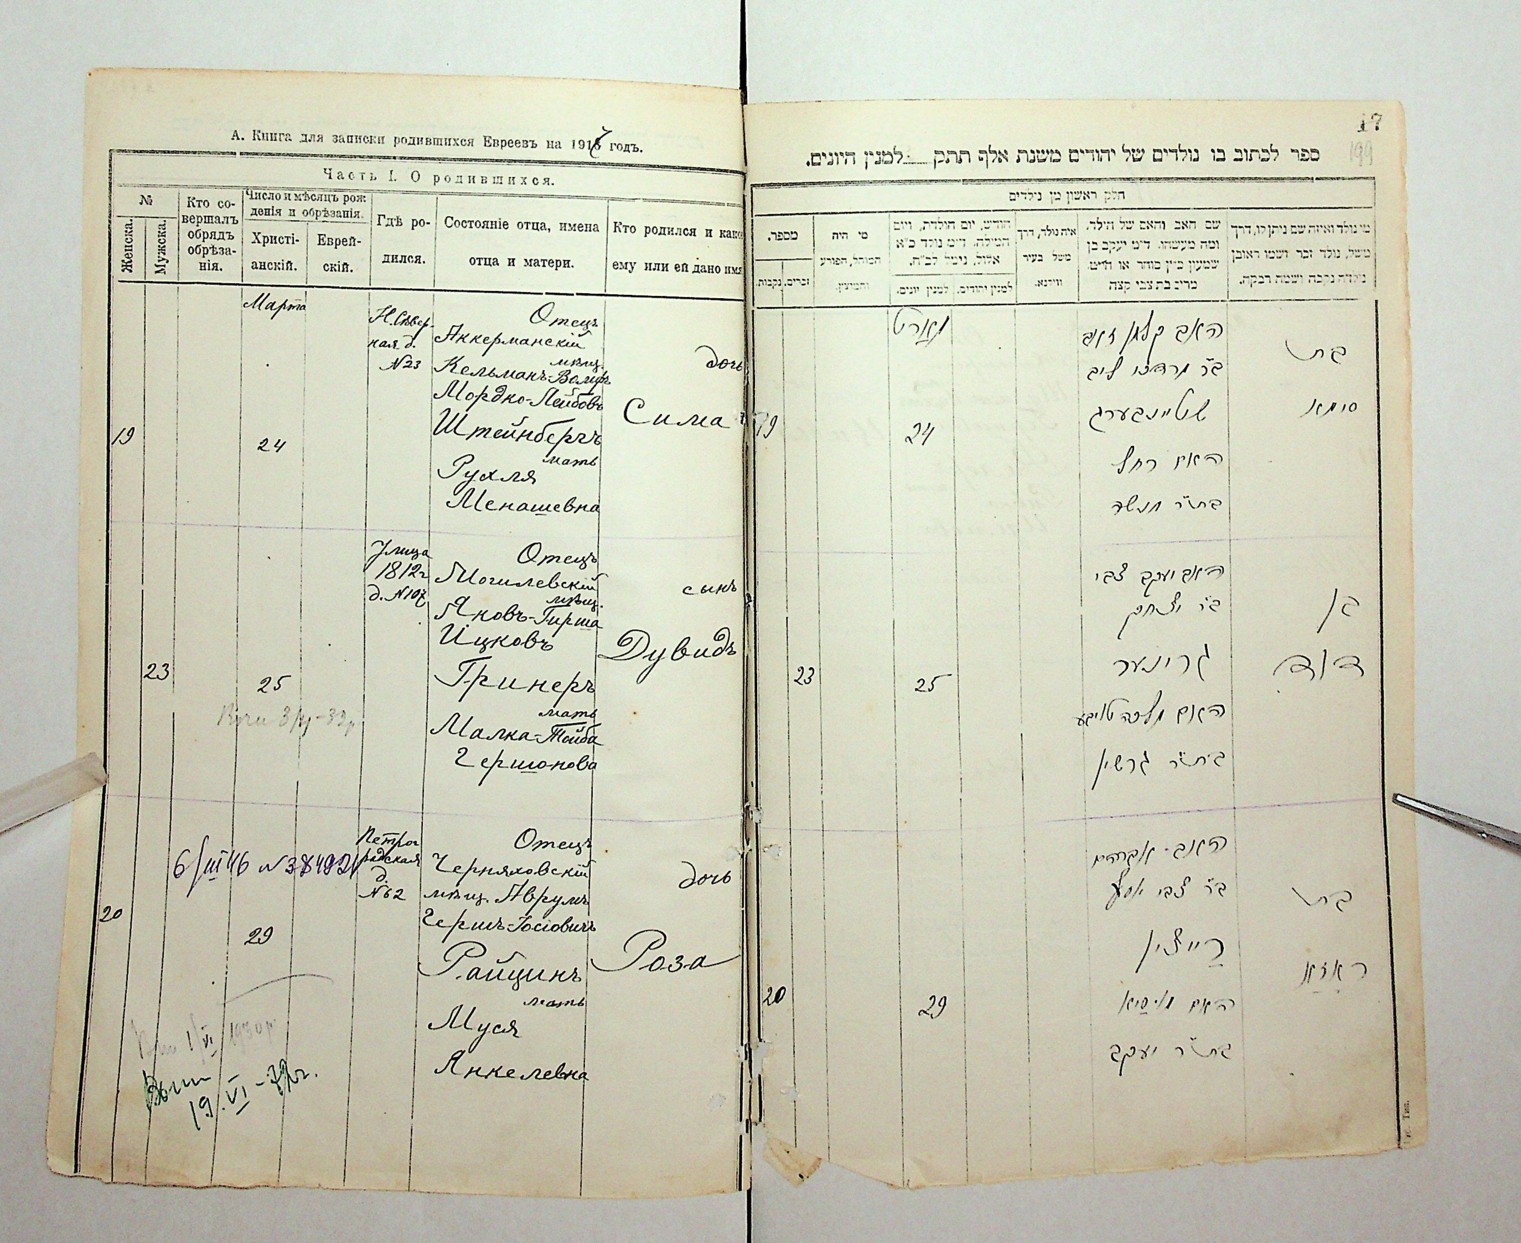 А. Книга для записки родившихся Евреевъ на 1917 годъ.
Часть I. О родившихся.
№
Женска.
Мужска.
Кто со-
вершалъ
обрядъ
обрѣза-
нія.
Число и мѣсяцъ рож-
денія и обрѣзанія.
Христі-
анскій.
Еврей-
скій.
Гдѣ ро-
дился.
Состояніе отца, имена
отца и матери.
Кто родился и како
ему или ей дано имя
Марта
19
24
кая д.
№23
Отецъ
Аккерманскій
мѣщ.
Кельманъ-Вольфъ
Мордко-Лейбовъ
Штейнбергъ
мать
Рухля
Менашевна
дочь
Сима
23
25
Улица
1812г
д. №107
Отецъ
Могилевскій
мѣщ.
Яковъ-Гирша
Ицковъ
Гринеръ
мать
Малка-Тойба
Гершонова
сынъ
Дувидъ
20
29
Петрог
радская
д.
№62
Отецъ
Черняховскій
мѣщ. Аврумъ
Гершъ-Іосіовичъ
Райцинъ
мать
Муся
Янкелевна
дочь
Роза
19.VI-
17
199
ספר לכתוב בו נולדים של יהודים משנת אלף תתק למנין היונים.
חלק ראשון מן נולדים
מספר.
זכרים.
נקבות.
מי היה
המוהל, הפורע
והמוצץ.
חודש, יום הולדת, ויום
המילה, ד״מ נולד כ״א
אלול, נימל לכ״ח.
למנין יונים.
למנין יהודים.
איה נולד, דרך
משל בעיר
ווילנא.
שם האב והאם של הילד.
ומה מעשהו. ד״מ יעקב בן
שמעון בנין סוחר או חייט
מרים בת צבי קצה
מי נולד ואיזה שם ניתן לו, דרך
משל, נולד זכר ושמו ראובן
נולדה נקבה ושמה רבקה.
מארט
19
24
האב קלמן זאב
ב״ר מרדכי ליב
שטיינבערג
האם רחל
בת״ר מנשה
בת
סימא
23
25
האב יעקב צבי
ב״ר יצחק
גרינער
האם מלכה טויבע
בת״ר גרשון
בן
דוד
20
29
האב אברהם
ב״ר צבי יוסף
רייצין
האם מוסיא
בת״ר יעקב
בת
ראזא